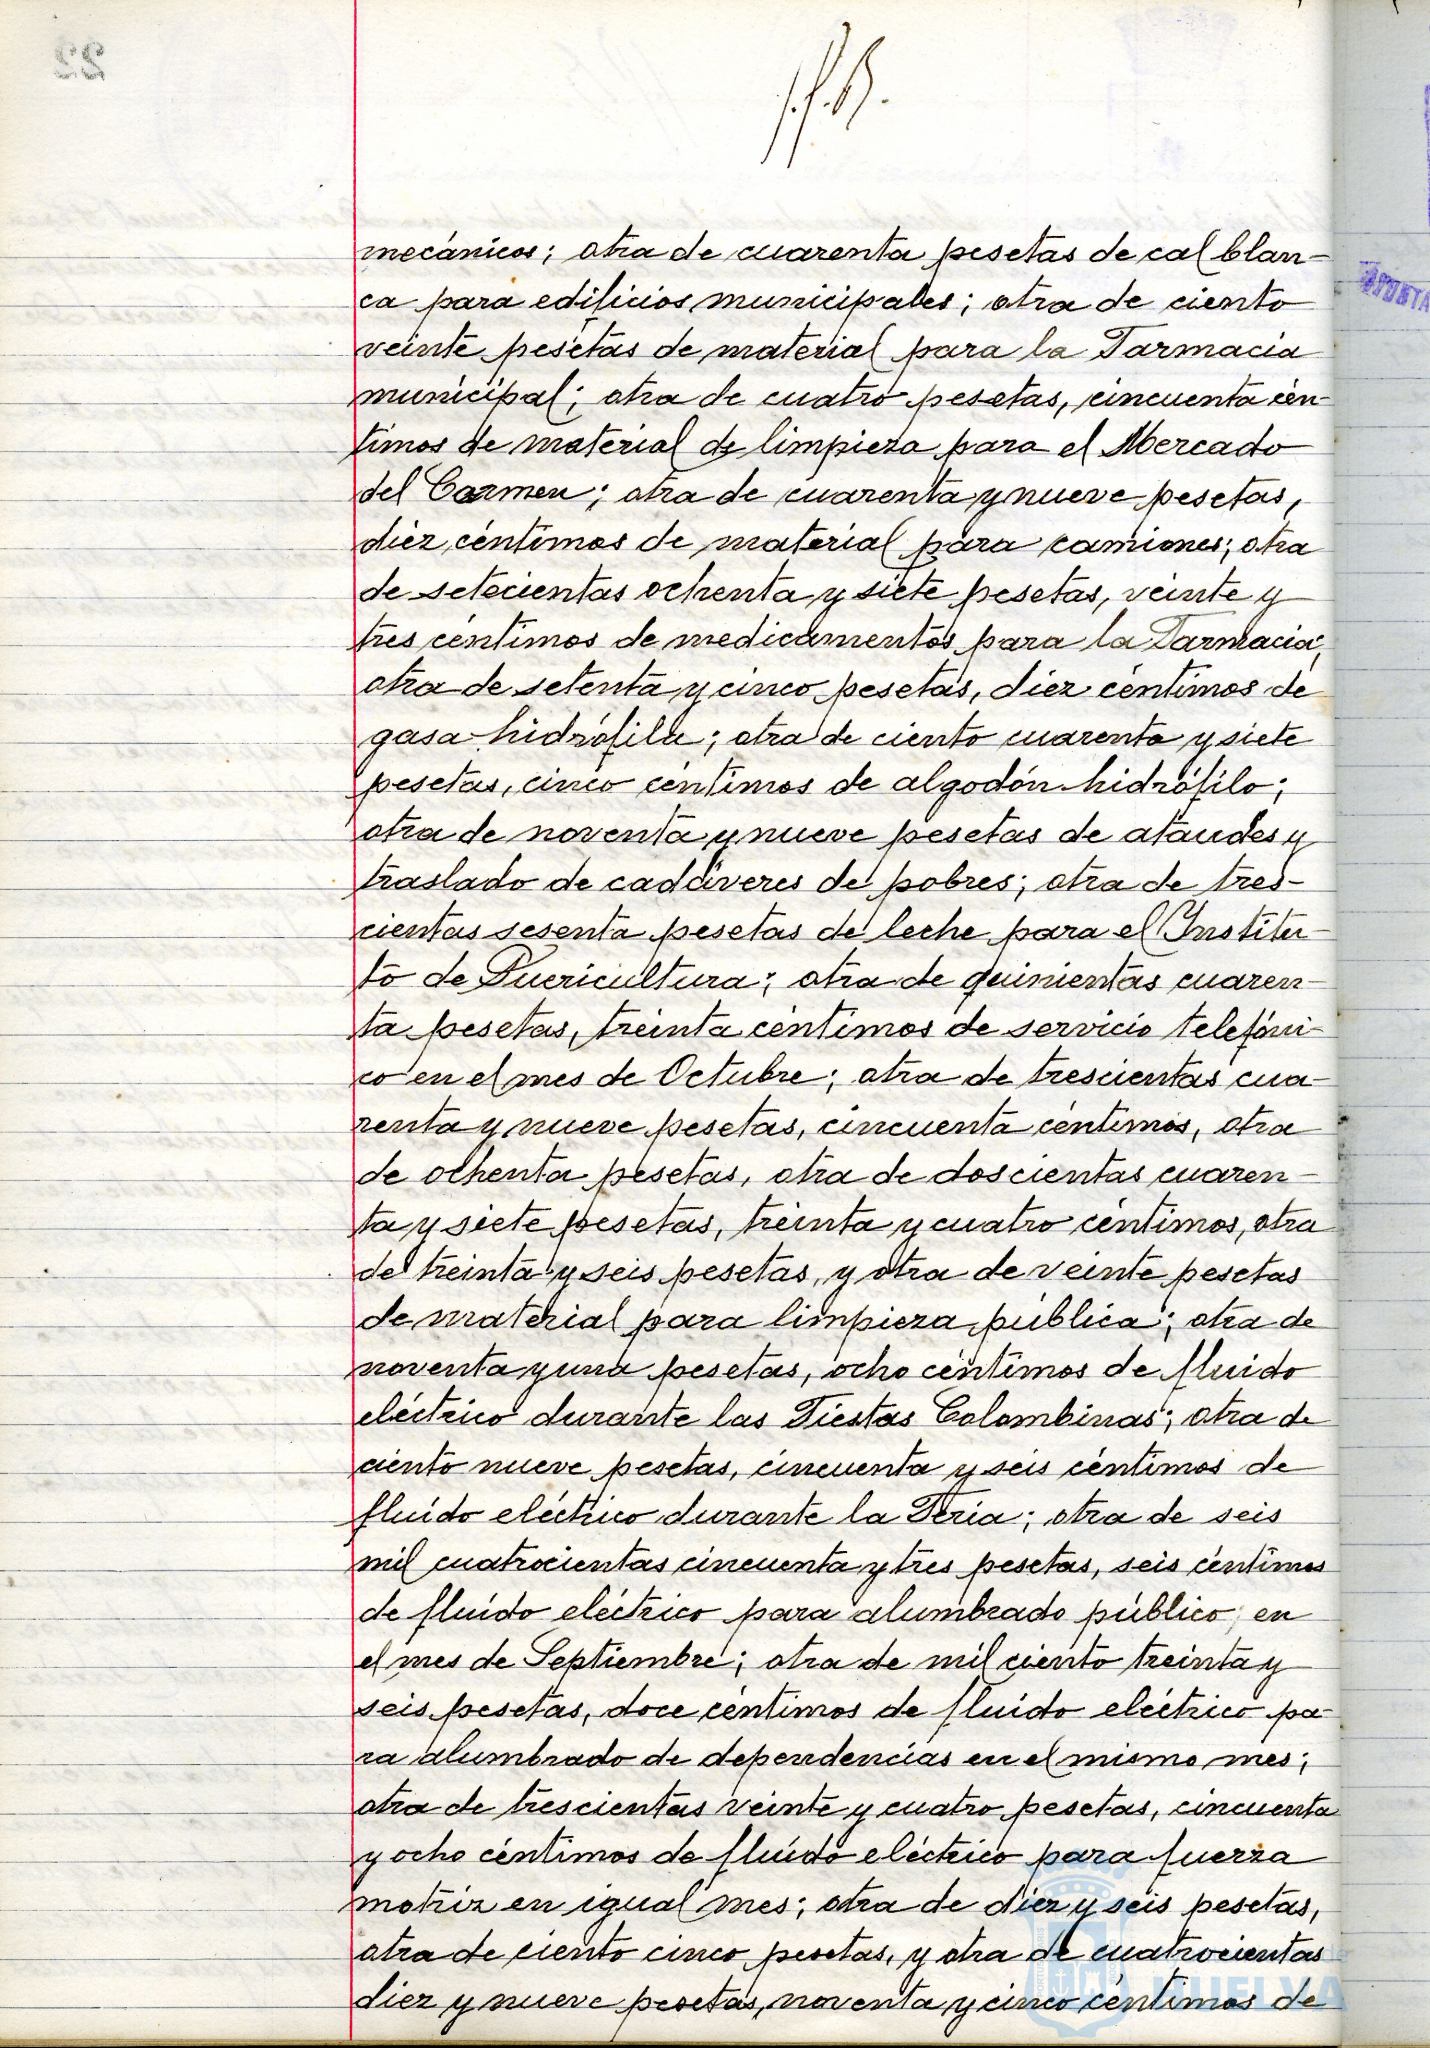 mecánicos; otra de cuarenta pesetas de cal blan-
ca para edificios municipales; otra de ciento
veinte pesetas de material para la Farmacia
municipal; otra de cuatro pesetas, cincuenta cén-
timos de material de limpieza para el Mercado
del Carmen; otra de cuarenta y nueve pesetas,
diez céntimos de material para camiones; otra
de setecientas ochenta y siete pesetas, veinte y
tres céntimos de medicamentos para la Farmacia;
otra de setenta y cinco pesetas, diez céntimos de
gasa hidrófila; otra de ciento cuarenta y siete
pesetas, cinco céntimos de algodón hidrófilo;
otra de noventa y nueve pesetas de ataudes y
traslado de cadáveres de pobres; otra de tres-
cientas sesenta pesetas de leche para el Institu-
to de Puericultura; otra de quinientas cuaren-
ta pesetas, treinta céntimos de servicio telefóni-
co en el mes de Octubre; otra de trescientas cua-
renta y nueve pesetas, cincuenta céntimos, otra
de ochenta pesetas, otra de doscientas cuaren-
ta y siete pesetas, treinta y cuatro céntimos, otra
de treinta y seis pesetas, y otra de veinte pesetas
de material para limpieza pública; otra de
noventa y una pesetas, ocho céntimos de fluido
eléctrico durante las Fiestas Colombinas; otra de
ciento nueve pesetas, cincuenta y seis céntimos de
fluído eléctrico durante la Feria; otra de seis
mil cuatrocientas cincuenta y tres pesetas, seis céntimos
de fluído eléctrico para alumbrado público en
el mes de Septiembre; otra de mil ciento treinta y
seis pesetas, doce céntimos de fluído eléctrico pa-
ra alumbrado de dependencias en el mismo mes;
otra de trescientas veinte y cuatro pesetas, cincuenta
y ocho céntimos de fluído eléctrico para fuerza
motriz en igual mes; otra de diez y seis pesetas,
otra de ciento cinco pesetas, y otra de cuatrocientas
diez y nueve pesetas, noventa y cinco céntimos de
HUELVA